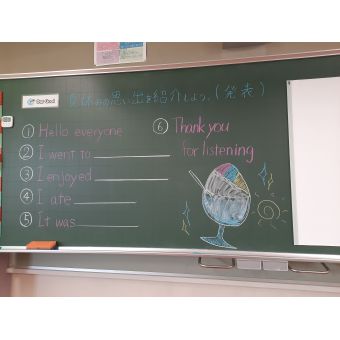 夏休みの思い出を紹介しよう。(発表)
① Hello everyone
② I went to
③ I enjoyed
④ I ate
⑤ It was
⑥ Thank you
for listening